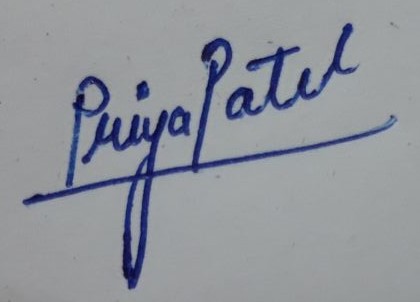 Priya Patel